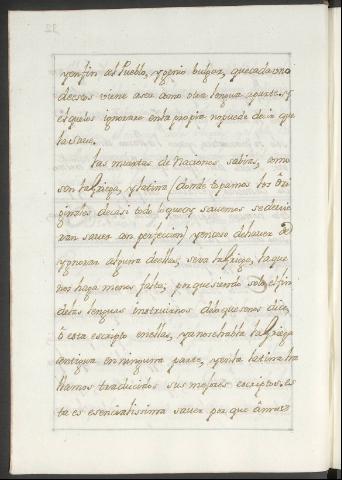 yenfin al Pueblo, ygenio bulgar, quecadauno
destos viene aser como otra lengua aparte, y
elquelos ignorare enla propia nopuede decir que
la save.
Las muertas de Naciones sabias, como
son la Griega, y latina (donde topamos los ori
ginales decasi todo loquecy savemos se devie
ran saver con perfeccion) yencaso dehaver de
ygnorar alguna dellas, sera la Griega, la que
nos haga menos falta; porquesiendo solo el fin
destas lenguas instruirnos deloquesenos dice,
ô esta escripto enellas, yanosehabla la Griega
antigua enninguna parte, yenla latina ha
llamos traducidos sus mejores escriptos, es
ta es esencialissima saver por que